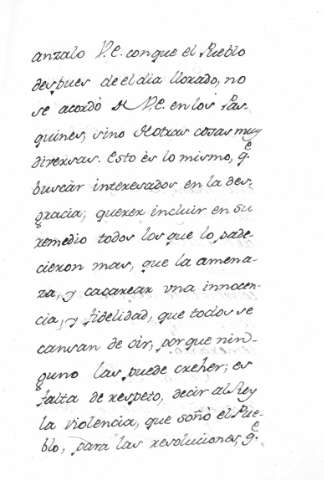 anzalo V.E. con que el Pueblo
despues de el dia llorado, no
se acordò de V.E. en los Pas-
quines, sino de otras cosas muy
diversas. Esto ès lo mismo, q.e
buscàr interesados en la des-
gracia; querer incluir en su
remedio todos los que lo pade-
cieron mas, que la amena-
za, y cacarear una innocen-
cia, y fidelidad, que todos se
cansan de oir, porque nin-
guno las puede creher; es
falta de respeto, decir al Rey
la violencia, que soñò el Pue-
blo, para las revoluciones, q.e